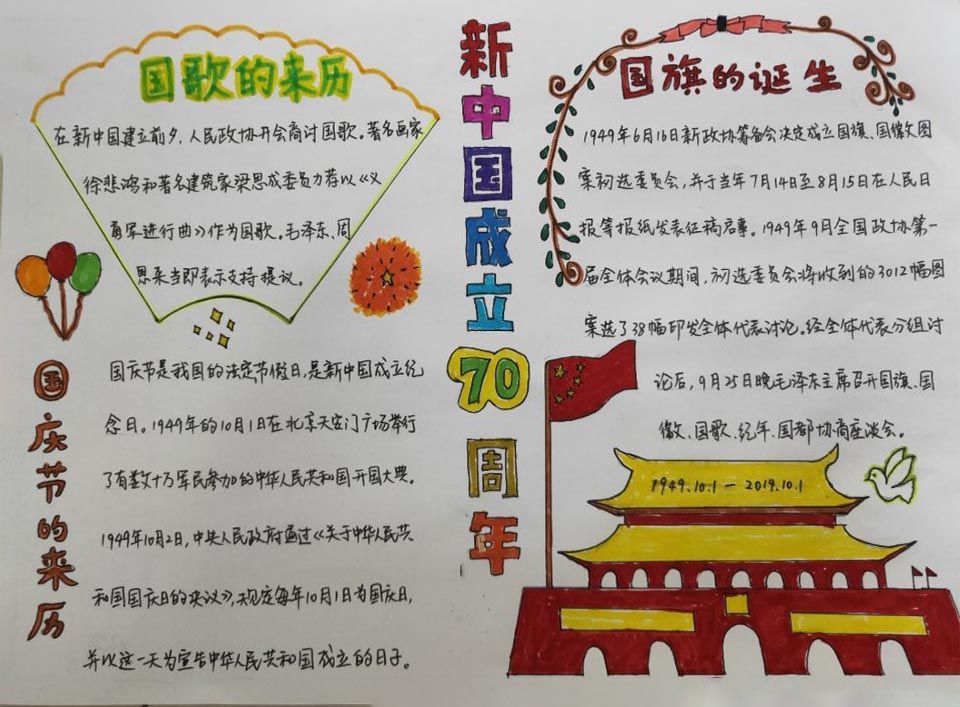 国歌的来历
在新中国建立前夕，人民政协开会商讨国歌。著名画家
徐悲鸿和著名建筑家梁思成委员力荐以《义
勇军进行曲》作为国歌。毛泽东、周
恩来当即表示支持提议。
国庆节的来历
国庆节是我国的法定节假日，是新中国成立纪
念日。1949年的10月1日在北京天安门广场举行
了有数十万军民参加的中华人民共和国开国大典。
1949年10月2日，中央人民政府通过《关于中华人民共
和国国庆日的决议》，规定每年10月1日为国庆日，
并以这一天为宣告中华人民共和国成立的日子。
新中国成立70周年
国旗的诞生
1949年6月16日新政协筹备会决定成立国旗、国徽图
案初选委员会，并于当年7月14日至8月15日在人民日
报等报纸发表征稿启事。1949年9月全国政协第一
届全体会议期间，初选委员会将收到的3012幅图
案选了38幅印发全体代表讨论。经全体代表分组讨
论后，9月25日晚毛泽东主席召开国旗、国
徽、国歌、纪年、国都协商座谈会。
1949.10.1－2019.10.1